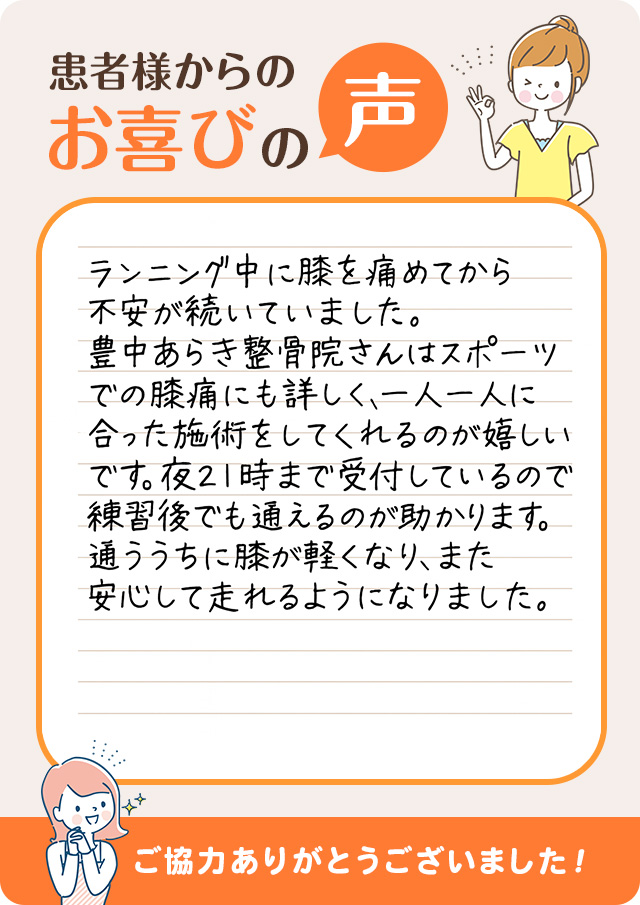 患者様からの
お喜びの声
ランニング中に膝を痛めてから
不安が続いていました。
豊中あらき整骨院さんはスポーツ
での膝痛にも詳しく、一人一人に
合った施術をしてくれるのが嬉しい
です。夜21時まで受付しているので
練習後でも通えるのが助かります。
通ううちに膝が軽くなり、また
安心して走れるようになりました。
ご協力ありがとうございました!